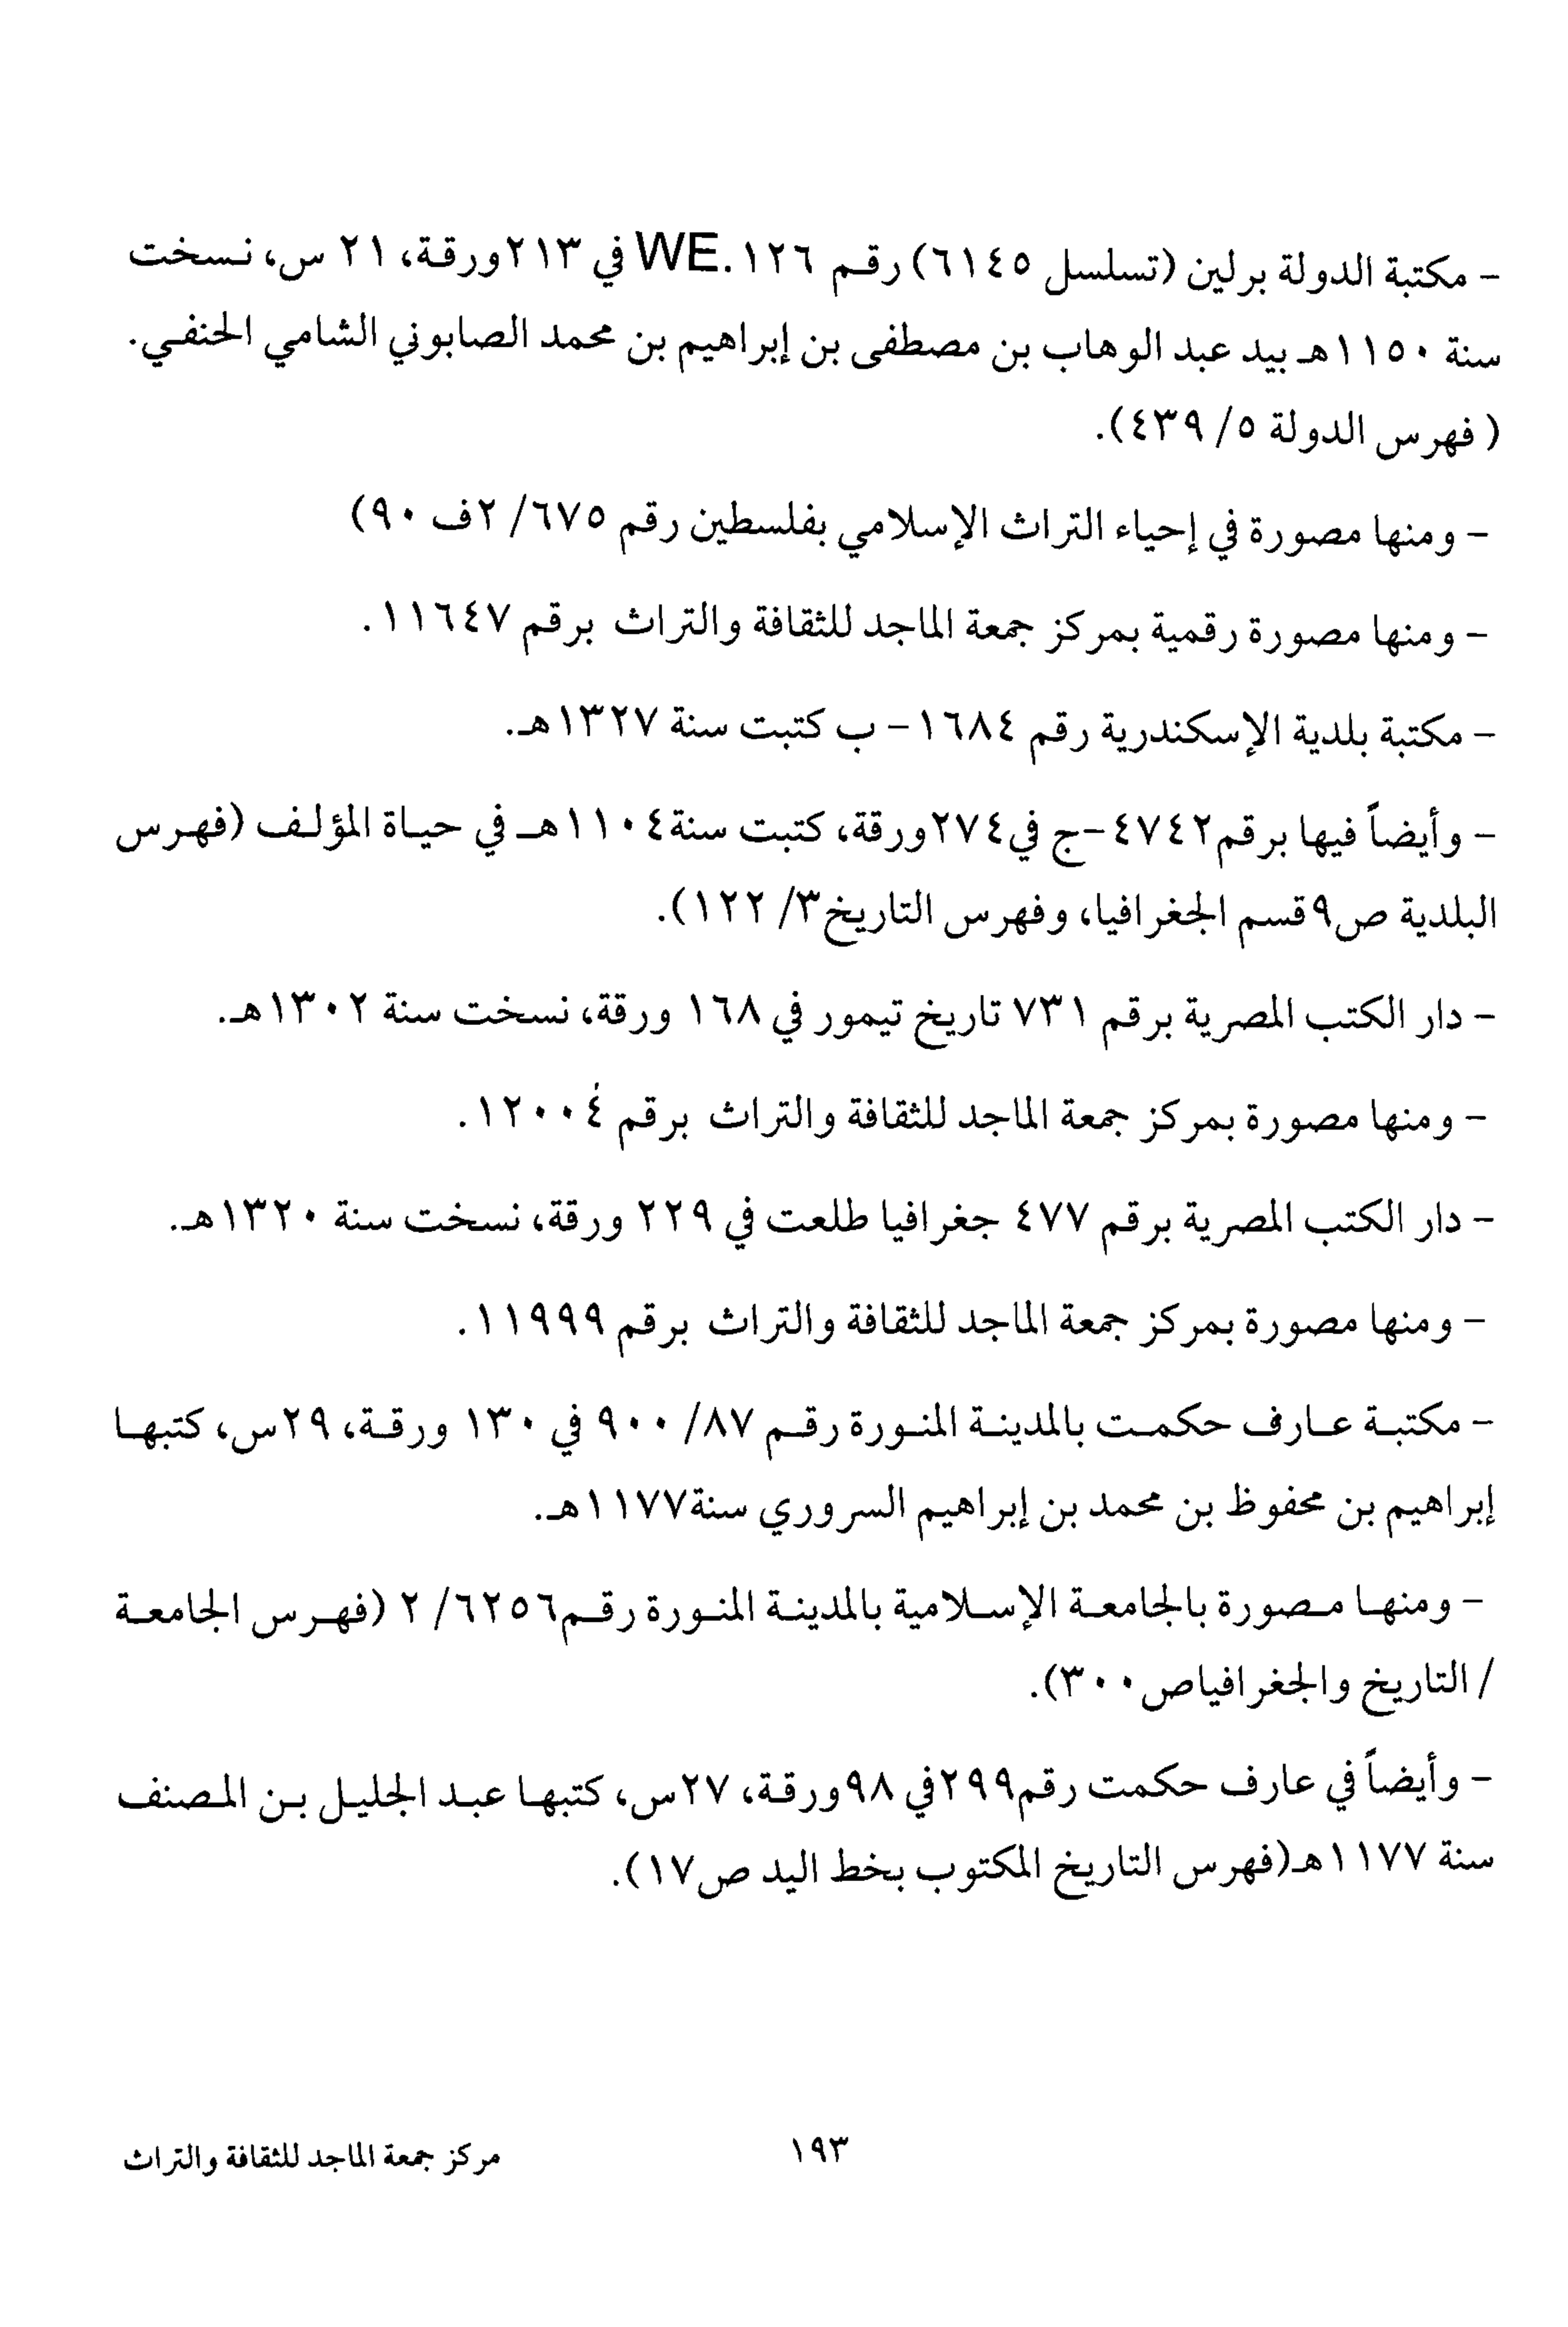 - مكتبة الدولة برلين (تسلسل ٦١٤٥) رقم ١٢٦.WE في ٢١٣ورقة، ٢١ س، نسخت
سنة ١١٥٠هـ بيد عبد الوهاب بن مصطفى بن إبراهيم بن محمد الصابوني الشامي الحنفي.
( فهرس الدولة ٥/ ٤٣٩).
- ومنها مصورة في إحياء التراث الإسلامي بفلسطين رقم ٦٧٥/ ٢ف ٩٠)
- ومنها مصورة رقمية بمركز جمعة الماجد للثقافة والتراث برقم ١١٦٤٧.
- مكتبة بلدية الإسكندرية رقم ١٦٨٤- ب كتبت سنة ١٣٢٧هـ.
- وأيضاً فيها برقم٤٧٤٢-ج في٢٧٤ورقة، كتبت سنة١١٠٤هـ في حياة المؤلف (فهرس
البلدية ص٩قسم الجغرافيا، وفهرس التاريخ٣/ ١٢٢).
- دار الكتب المصرية برقم ٧٣١ تاريخ تيمور في ١٦٨ ورقة، نسخت سنة ١٣٠٢هـ.
- ومنها مصورة بمركز جمعة الماجد للثقافة والتراث برقم ١٢٠٠٤.
- دار الكتب المصرية برقم ٤٧٧ جغرافيا طلعت في ٢٢٩ ورقة، نسخت سنة ١٣٢٠هـ.
- ومنها مصورة بمركز جمعة الماجد للثقافة والتراث برقم ١١٩٩٩.
- مكتبة عارف حكمت بالمدينة المنورة رقم ٨٧/ ٩٠٠ في ١٣٠ ورقة، ٢٩س، كتبها
إبراهيم بن محفوظ بن محمد بن إبراهيم السروري سنة١١٧٧هـ.
- ومنها مصورة بالجامعة الإسلامية بالمدينة المنورة رقم٦٢٥٦/ ٢ (فهرس الجامعة
/ التاريخ والجغرافياص٣٠٠).
- وأيضاً في عارف حكمت رقم٢٩٩في ٩٨ورقة، ٢٧س، كتبها عبد الجليل بن المصنف
سنة ١١٧٧هـ(فهرس التاريخ المكتوب بخط اليد ص١٧).
١٩٣
مركز جمعة الماجد للثقافة والتراث